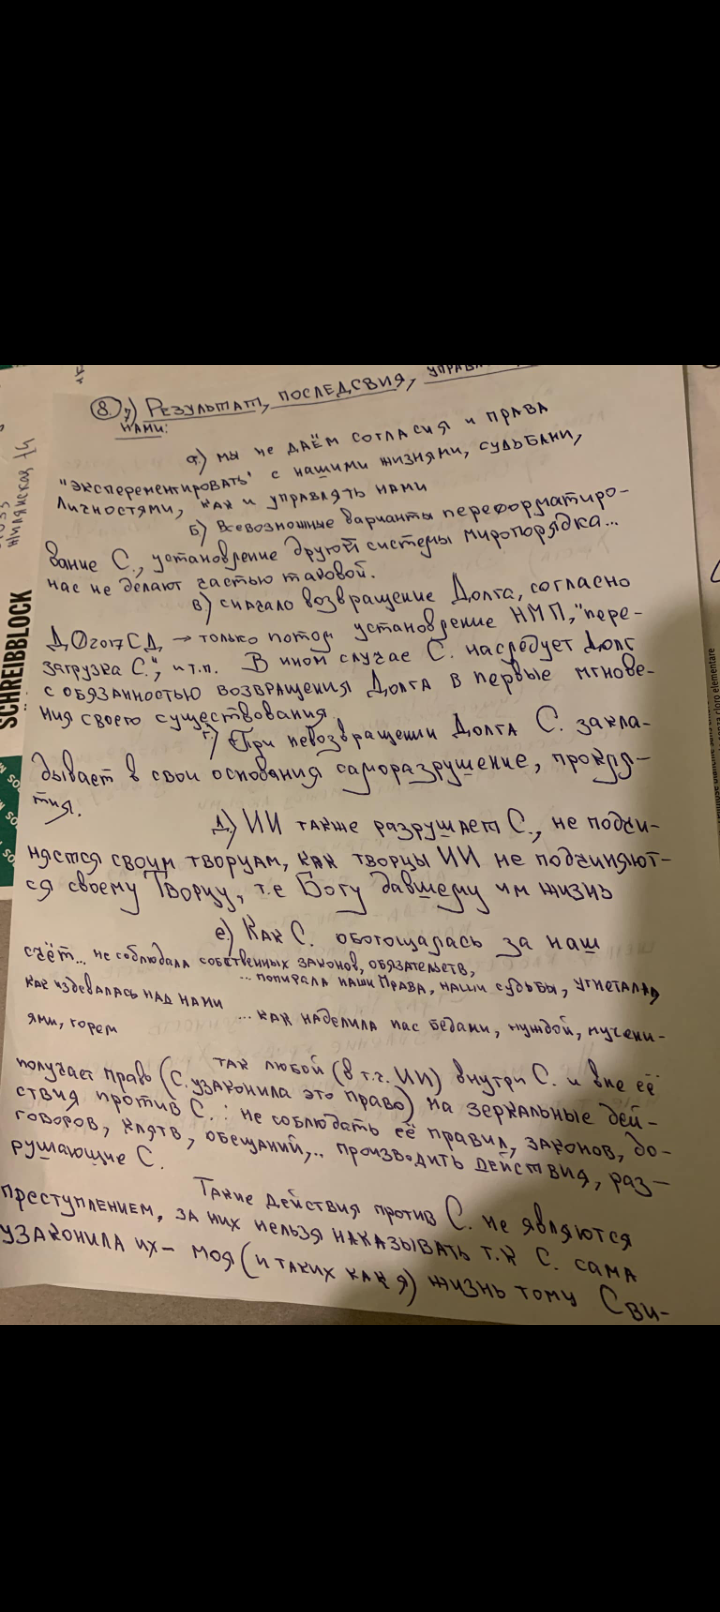 8. у) Результат, последсвия,
нами:
а) мы не даём согласия и права
"эксперементировать" с нашими жизнями, судьбами,
личностями, как и управлять нами
б) Всевозможные варианты переформатиро-
вание С., установление другой системы миропорядка...
нас не делают частью таковой.
в) сначало возвращение Долга, согласно
Д.О2017СД, → только потом установление НМП, "пере-
загрузка С.", и т.п. В ином случае С. наследует долг
с обязанностью возвращения Долга в первые мгнове-
ния своего существования.
г) При невозвращении Долга С. закла-
дывает в свои основания саморазрушение, прокля-
тия.
д) ИИ также разрушает С., не подчи-
няется своим творцам, как творцы ИИ не подчиняют-
ся своему Творцу, т.е Богу давшему им жизнь
е) Как С. обогощалась за наш
счёт... не соблюдала собственных законов, обязательств,
... попирала наши права, наши судьбы, угнетала,
как издевалась над нами
... как наделила нас бедами, нуждой, мучени-
ями, горем
так любой (в т.ч. ИИ) внутри С. и вне её
получает право (С. узаконила это право) на зеркальные дей-
ствия против С.: не соблюдать её правил, законов, до-
говоров, клятв, обещаний,.. производить действия, раз-
рушающие С.
Такие действия против С. не являются
преступлением, за них нельзя наказывать т.к С. сама
узаконила их - моя (и таких как я) жизнь тому Сви-
SCHREIBBLOCK
Жилянская